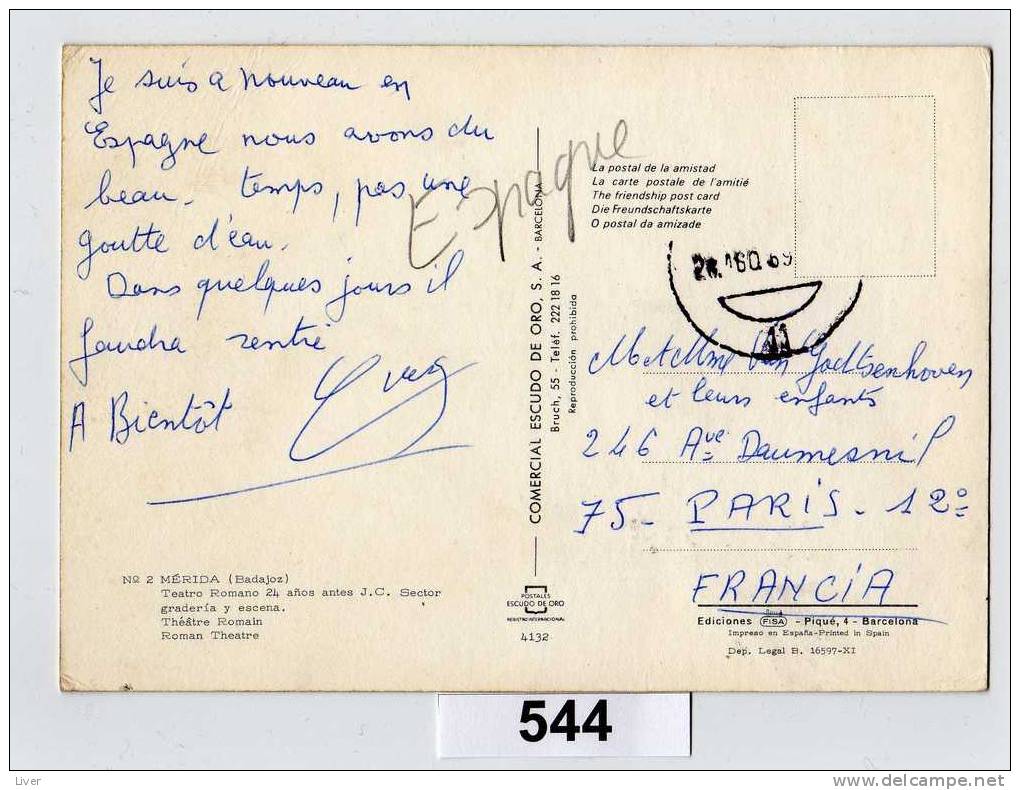 Je suis a nouveau en
Espagne nous avons du
beau temps, pas une
goutte d'eau.
Dans quelques jours il
faudra rentré
A Bientôt
Yves
Espagne
COMERCIAL ESCUDO DE ORO, S. A. - BARCELONA
Bruch, 55 - Teléf. 222 18 16
Reproducción prohibida
La postal de la amistad
La carte postale de l'amitié
The friendship post card
Die Freundschaftskarte
O postal da amizade
41
M et Mme Van Goettsenhoven
et leurs enfants
246 Ave Daumesnil
75 - PARIS - 12e
FRANCIA
Nº 2 MÉRIDA (Badajoz)
Teatro Romano 24 años antes J.C. Sector
gradería y escena.
Théâtre Romain
Roman Theatre
POSTALES
ESCUDO DE ORO
REGISTRO INTERNACIONAL
4132
Ediciones FISA - Piqué, 4 - Barcelona
Impreso en España-Printed in Spain
Dep. Legal B. 16597-XI
544
Liver
delcampe.net